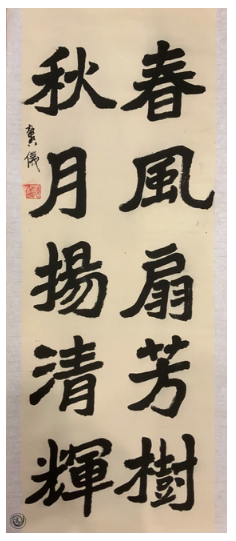 春風扇芳樹
秋月揚清輝